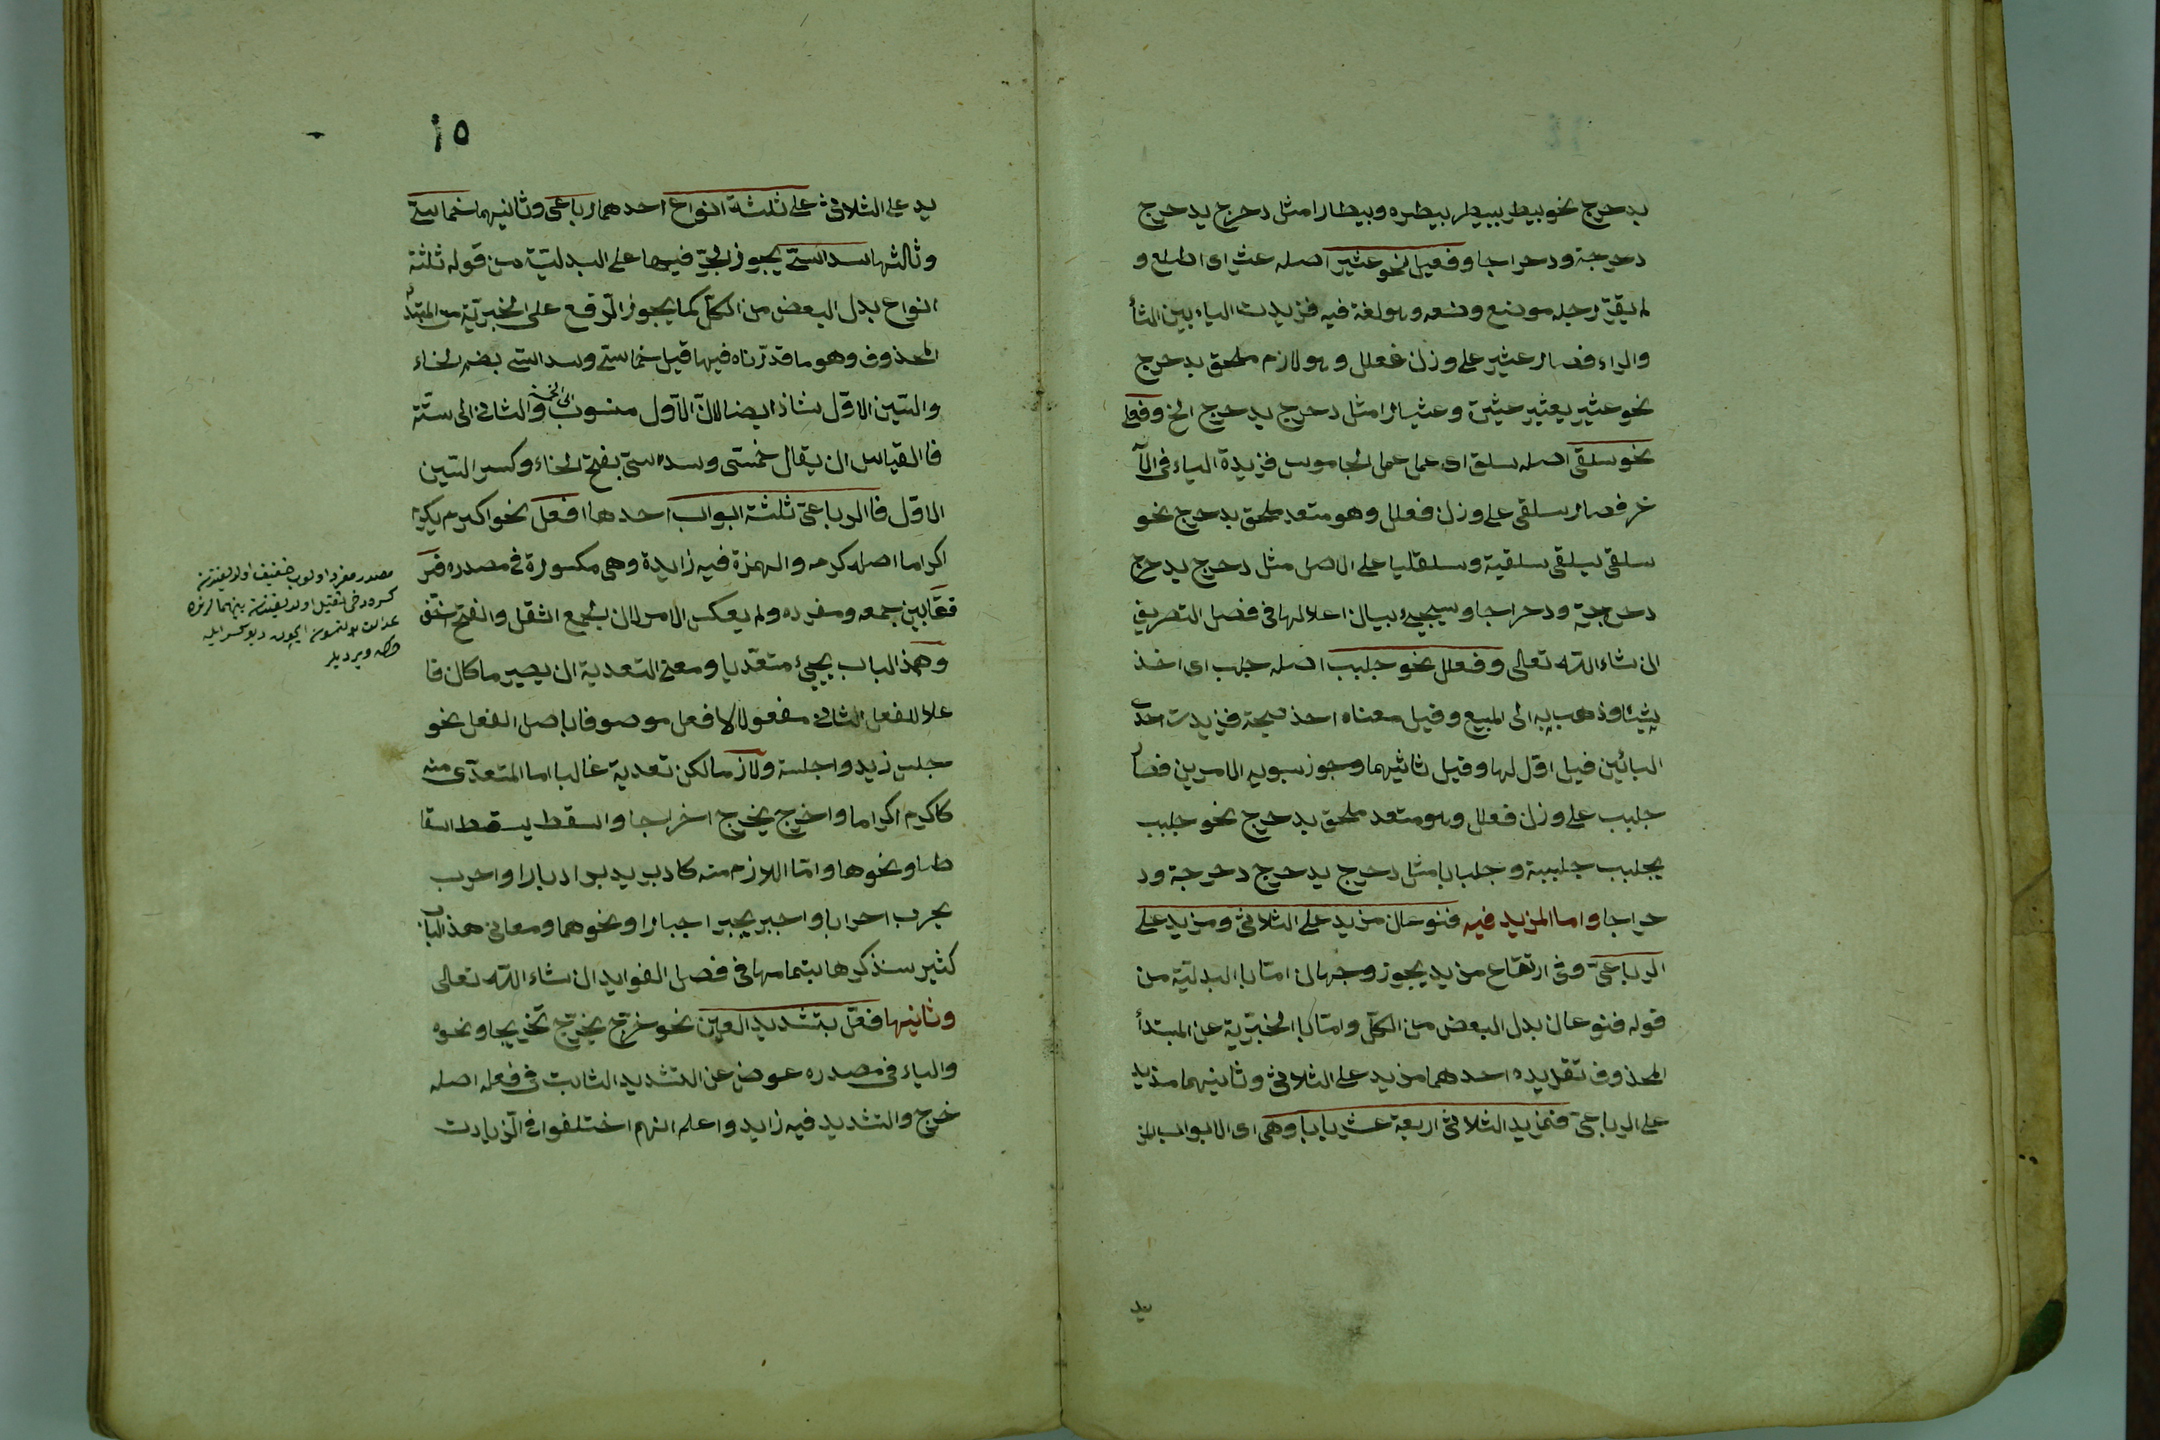 بدحرج نحو بيطر يبيطر بيطرة وبيطارا مثل دحرج يدحرج
دحرجة ودحراجا وفعيل نحو عثير اصله عثر اى اطلع و
لم يقرّ رجله موضع وضعه وهو لغة فيه فزيدت الياء بين الثأ
والراء فصار عثير على وزن فعلل وهو لازم ملحق بدحرج
نحو عثير يعثير عثيرة وعثيارا مثل دحرج يدحرج الخ وفعلى
نحو سلقى اصله سلق اى عمل عمل الجاموس فزيدة الياء فى الآ
خر فصار سلقى على وزن فعلل وهو متعد ملحق بدحرج نحو
سلقى يسلقى سلقية وسلقايا على الاصل مثل دحرج يدحرج
دحرجة ودحراجا وسيجيء بيان اعلالها فى فصل التصريف
ان شاء الله تعالى وفعلل نحو جلبب اصله جلب اى اخذ
شيئا وذهب به الى المبيع وقيل معناه اخذ فزيدت احدى
البائين قيل اوّل لها وقيل ثانيهما وجوز سيبويه الامرين فصار
جلبب على وزن فعلل وهو متعد ملحق بدحرج نحو جلبب
يجلبب جلببة وجلبابا مثل دحرج يدحرج دحرجة ود
حراجا واما المزيد فيه فنوعان مزيد على الثلاثى ومزيد على
الرباعىّ وفى ارتفاع مزيد يجوز وجهان امّا بالبدليّة من
قوله فنوعان بدل البعض من الكلّ وامّا بالخبريّة عن المبتدأ
المحذوف تقديره احدهما مزيد على الثلاثىّ وثانيهما مزيد
على الرباعىّ فمزيد الثلاثىّ اربعة عشر بابا وهى اى الابواب المز
يد
١٥
يد على الثلاثىّ على ثلثة انواع احدهما رباعىّ وثانيهما خماسىّ
وثالثها سداسىّ يجوز الجرّ فيها على البدليّة من قوله ثلثة
انواع بدل البعض من الكلّ كما يجوز الرّفع على الخبريّة من المبتدأ
المحذوف وهو ما قدّرناه فيها قيل خماسىّ وسداسىّ بضم الخاء
والسّين الاوّل شاذ ايضا لانّ الاوّل منسوب الى الخمسة والثانى الى ستّة
فالقياس ان يقال خمسى وسداسىّ بفتح الخاء وكسر السّين
الاوّل فالرباعىّ ثلثة ابواب احدها افعل نحو اكرم يكرم
اكراما اصله كرم والهمزة فيه زايدة وهى مكسورة فى مصدره فر
قا بين جمعه ومفرده ولم يعكس الامر لان الجمع اثقل والفتح اخفّ
وهذا الباب يجيء متعدّيا ومعنى التعدية ان يصير ما كان فا
علا للفعل الثانى مفعولا لافعل موصوفا باصل الفعل نحو
جلس زيد واجلسته ولازما لكن تعدية غالبا اما المتعدّى منه
كاكرم اكراما واخرج يخرج اخراجا واسقط يسقط اسقا
طا ونحوها وامّا اللازم منه كادبر يدبر ادبارا واحرب
يحرب احرابا واجبر يجبر اجبارا ونحوهما ومعانى هذا الباب
كثير سنذكرها بتمامها فى فصل الفوايد ان شاء الله تعالى
وثانيها فعّل بتشديد العين نحو خرّج يخرّج تخريجا ونحوه
والياء فى مصدره عوض عن التشديد الثابت فى فعله اصله
خرج والتشديد فيه زايد واعلم انهم اختلفوا فى الزّيادت
مصدر مفرد اولوب خفيف اولديغندن
كسره دخى ثقيل اولديغندن بينهما لرنده
عدالت بولنمسون ايچون ديو كسر ايله
حركه ويرديلر